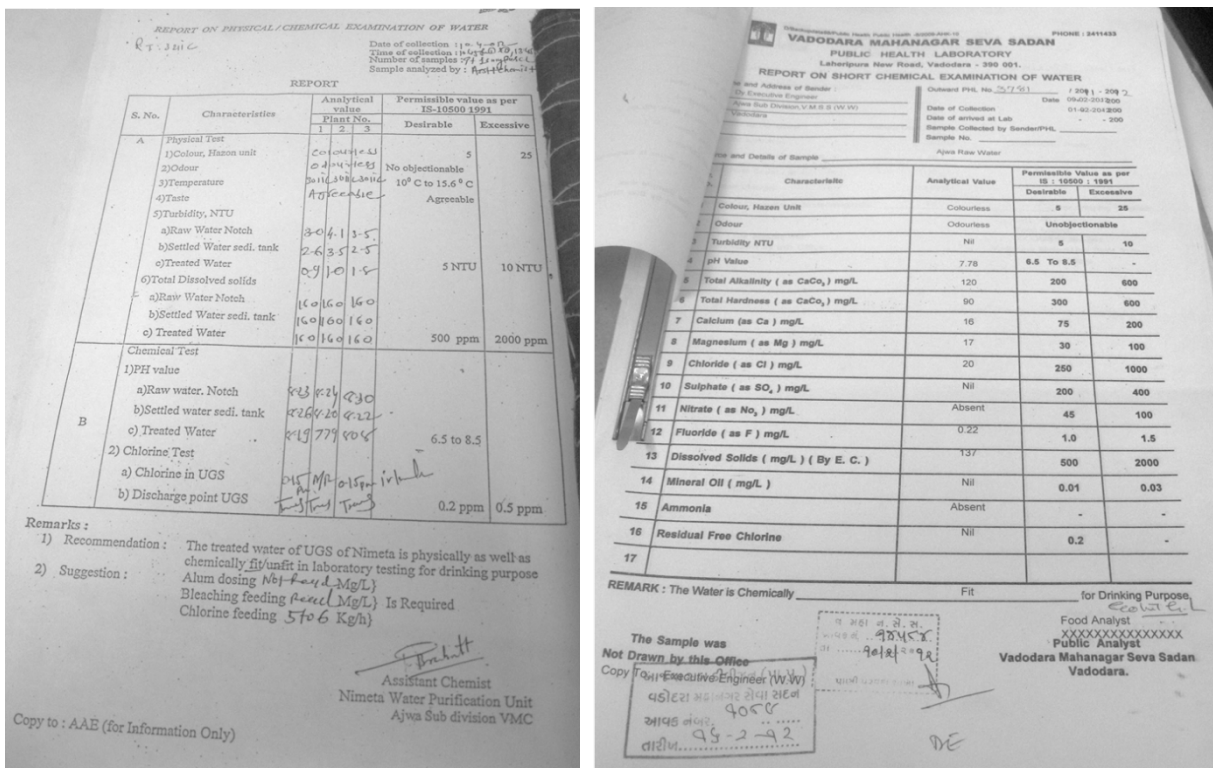 REPORT ON PHYSICAL/CHEMICAL EXAMINATION OF WATER
Date of collection :
Time of collection :
Number of samples :
Sample analyzed by : Asst Chemist
REPORT
S. No. Characteristics Analytical value Permissible value as per IS-10500 1991
Plant No. Desirable Excessive
1 2 3
A Physical Test
1)Colour, Hazon unit Colourless 5 25
2)Odour odourless No objectionable
3)Temperature 10° C to 15.6° C
4)Taste Agreeable Agreeable
5)Turbidity, NTU
a)Raw Water Notch
b)Settled Water sedi. tank 2-6 3-5 2-5
c)Treated Water 0.9 1.0 1.8 5 NTU 10 NTU
6)Total Dissolved solids
a)Raw Water Notch 160 160 160
b)Settled Water sedi. tank 160 160 160
c) Treated Water 160 160 160 500 ppm 2000 ppm
B Chemical Test
1)PH value
a)Raw water. Notch 8.23 8.24 8.30
b)Settled water sedi. tank 8.26 8.20 8.22
c) Treated Water 8.19 7.79 8.08 6.5 to 8.5
2) Chlorine Test
a) Chlorine in UGS
b) Discharge point UGS 0.2 ppm 0.5 ppm
Remarks :
1) Recommendation : The treated water of UGS of Nimeta is physically as well as
chemically fit/unfit in laboratory testing for drinking purpose
2) Suggestion : Alum dosing Not Reqd Mg/L}
Bleaching feeding Reqd Mg/L} Is Required
Chlorine feeding 5 to 6 Kg/h}
Assistant Chemist
Nimeta Water Purification Unit
Ajwa Sub division VMC
Copy to : AAE (for Information Only)
PHONE : 2411433
VADODARA MAHANAGAR SEVA SADAN
PUBLIC HEALTH LABORATORY
Laheripura New Road, Vadodara - 390 001.
REPORT ON SHORT CHEMICAL EXAMINATION OF WATER
e and Address of Sender :
Dy Executive Engineer
Ajwa Sub Division,V.M.S.S (W.W)
Vadodara
Outward PHL No. 3781 / 2011 - 2012
Date 09-02-2012
Date of Collection 01-02-2012
Date of arrived at Lab - - 200
Sample Collected by Sender/PHL
Sample No.
me and Details of Sample Ajwa Raw Water
Characteristic Analytical Value Permissible Value as per IS : 10500 : 1991
Desirable Excessive
Colour, Hazen Unit Colourless 5 25
2 Odour Odourless Unobjectionable
3 Turbidity NTU Nil 5 10
4 pH Value 7.78 6.5 To 8.5 -
5 Total Alkalinity ( as CaCo3 ) mg/L 120 200 600
6 Total Hardness ( as CaCo3 ) mg/L 90 300 600
7 Calcium (as Ca ) mg/L 16 75 200
8 Magnesium ( as Mg ) mg/L 17 30 100
9 Chloride ( as Cl ) mg/L 20 250 1000
10 Sulphate ( as SO4 ) mg/L Nil 200 400
11 Nitrate ( as No3 ) mg/L Absent 45 100
12 Fluoride ( as F ) mg/L 0.22 1.0 1.5
13 Dissolved Solids ( mg/L ) ( By E. C. ) 137 500 2000
14 Mineral Oil ( mg/L ) Nil 0.01 0.03
15 Ammonia Absent - -
16 Residual Free Chlorine Nil 0.2 -
17
REMARK : The Water is Chemically Fit for Drinking Purpose
Food Analyst
XXXXXXXXXXXXXXX
Public Analyst
Vadodara Mahanagar Seva Sadan
Vadodara.
The Sample was
Not Drawn by this Office
Copy To Executive Engineer (W.W)
વડોદરા મહાનગર સેવા સદન
આવક નંબર. ૧૦૬૪
તારીખ ૧૬-૨-૧૨
DE